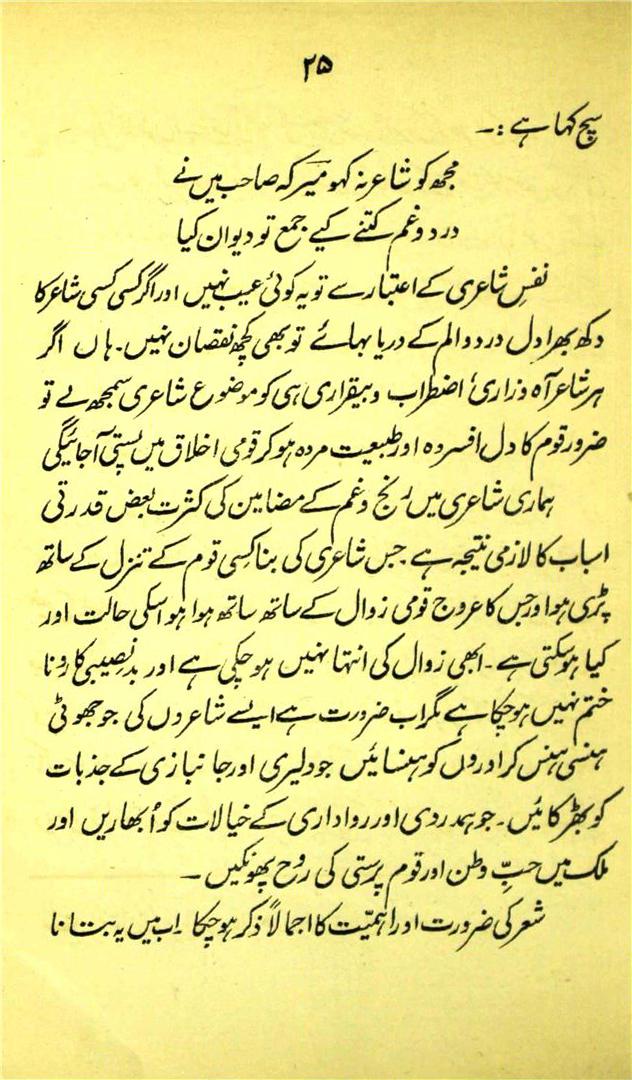 ۲۵
سچ کہا ہے :۔
مجھ کو شاعر نہ کہو میر کہ صاحب میں نے
درد و غم کتنے کیے جمع تو دیوان کیا
نفسِ شاعری کے اعتبار سے تو یہ کوئی عیب نہیں اور اگر کسی کسی شاعر کا
دکھ بھرا دل درد و الم کے دریا بہائے تو بھی کچھ نقصان نہیں۔ ہاں اگر
ہر شاعر آہ و زاری اضطراب و بیقراری ہی کو موضوع شاعری سمجھ لے تو
ضرور قوم کا دل افسردہ اور طبیعت مردہ ہو کر قومی اخلاق میں پستی آ جائیگی
ہماری شاعری میں رنج و غم کے مضامین کی کثرت بعض قدرتی
اسباب کا لازمی نتیجہ ہے جس شاعری کی بنا کسی قوم کے تنزل کے ساتھ
پڑی ہو اور جس کا عروج قومی زوال کے ساتھ ساتھ ہوا ہو اسکی حالت اور
کیا ہو سکتی ہے۔ ابھی زوال کی انتہا نہیں ہو چکی ہے اور بدنصیبی کا رونا
ختم نہیں ہو چکا ہے مگر اب ضرورت ہے ایسے شاعروں کی جو جھوٹی
ہنسی ہنس کر اوروں کو ہنسائیں جو دلیری اور جانبازی کے جذبات
کو بھڑکائیں۔ جو ہمدردی اور رواداری کے خیالات کو اُبھاریں اور
ملک میں حبِّ وطن اور قوم پرستی کی روح پھونکیں۔
شعر کی ضرورت اور اہمیّت کا اجمالاً ذکر ہو چکا۔ اب میں یہ بتانا